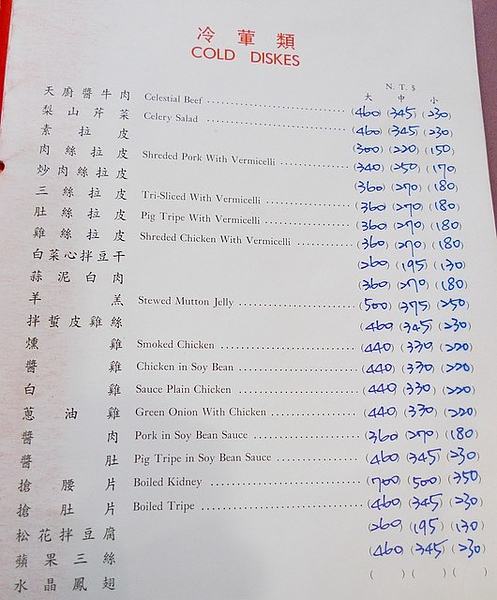 冷葷類
COLD DISKES
N.T.$
大 中 小
天廚醬牛肉 Celestial Beef (460) (345) (230)
梨山芹菜 Celery Salad (460) (345) (230)
素拉皮 (300) (220) (150)
肉絲拉皮 Shredded Pork With Vermicelli (340) (250) (170)
炒肉絲拉皮 (360) (270) (180)
三絲拉皮 Tri-Sliced With Vermicelli (360) (270) (180)
肚絲拉皮 Pig Tripe With Vermicelli (360) (270) (180)
雞絲拉皮 Shredded Chicken With Vermicelli (360) (270) (180)
白菜心拌豆干 (260) (195) (130)
蒜泥白肉 (360) (270) (180)
羊羔 Stewed Mutton Jelly (500) (375) (250)
拌蜇皮雞絲 (460) (345) (230)
燻雞 Smoked Chicken (440) (330) (220)
醬雞 Chicken in Soy Bean (440) (330) (220)
白雞 Sauce Plain Chicken (440) (330) (220)
蔥油雞 Green Onion With Chicken (440) (330) (220)
醬肉 Pork in Soy Bean Sauce (360) (270) (180)
醬肚 Pig Tripe in Soy Bean Sauce (460) (345) (230)
搶腰片 Boiled Kidney (700) (500) (350)
搶肚片 Boiled Tripe (460) (345) (230)
松花拌豆腐 (260) (195) (130)
蘋果三絲 (460) (345) (230)
水晶鳳翅 ( ) ( ) ( )